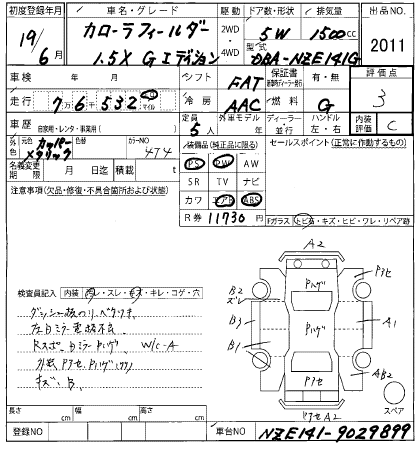 初度登録年月 車名・グレード 2WD ドア数・形状 排気量 出品NO
19/6月 カローラフィールダー 5W 1500cc 2011
1.5X Gエディション 4WD 型式 DBA-NZE141G
車検 年 月 シフト FAT 保証書 有・無 評価点
走行 7万6千532 km マイル 冷房 AAC 燃料 G 3
車歴 自家用・レンタ・事業用( ) 定員 5人 外車モデル ディーラー・並行 ハンドル 左・右 内装 C
外色 元色 カッパーメタリック 色替 カラーNO 474 装備品(純正品に限る) セールスポイント(正常に作動するもの)
PS PW AW
名義変更期限 月 日迄 積載 t SR TV ナビ
注意事項(欠品・修復・不具合箇所および状態) カワ エアB ABS
R券 11730 円
Fガラス トビ石・キズ・ヒビ・ワレ・リペア跡
A2
Pアセ
B2
Pハゲ
検査員記入 内装 スレ・キズ・キレ・コゲ・穴
ダッシュ板のり、ベタつき B3 Pハゲ A1
左ドミラー電格不良
Rスポ、ドミラーPハゲ W/C-A B1
外装 Pアセ、Pハゲ AB2
キズ、B Pアセ
スペア
PアセA2
長さ cm 幅 cm 高さ cm
登録NO 車台NO NZE141-9029899